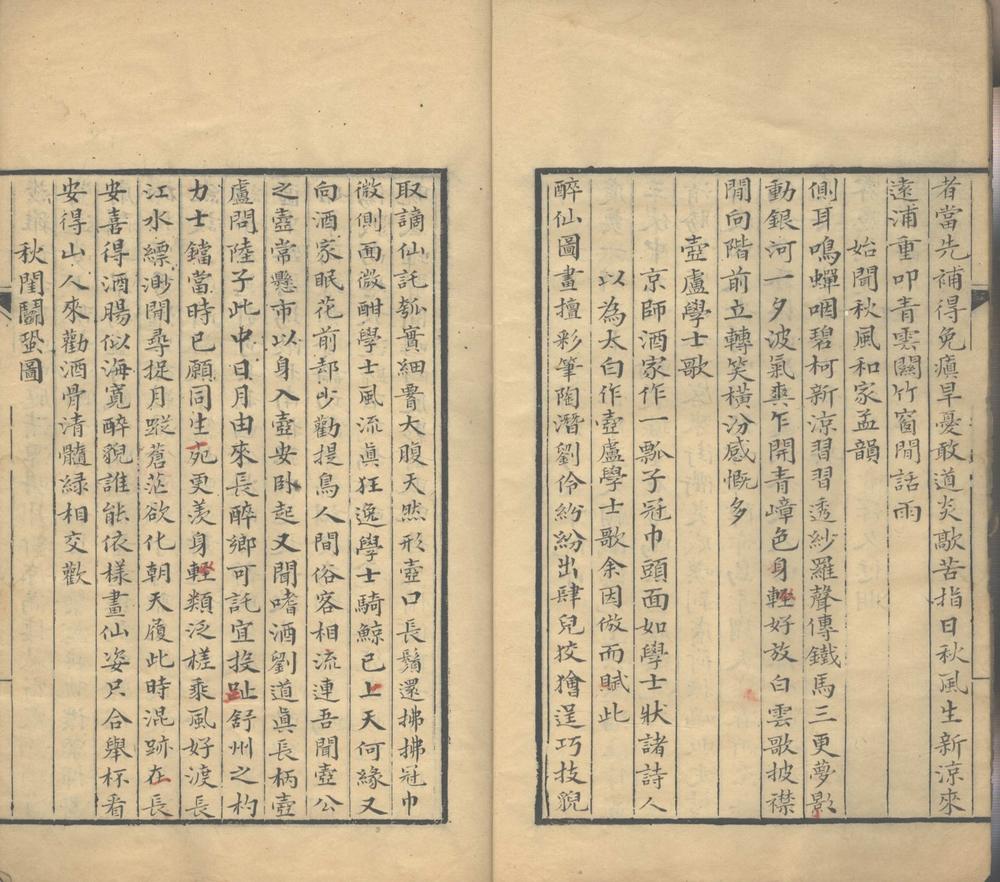 者當先補得免瘨旱憂敢道炎歊苦指日秋風生新涼來
遠浦重叩青雲關竹窗閒話雨
始聞秋風和家孟韻
側耳鳴蟬咽碧柯新涼習習透紗羅聲傳鐵馬三更夢影
動銀河一夕波氣爽乍開青嶂色身輕好放白雲歌披襟
閒向階前立轉笑橫汾感慨多
壺盧學士歌
京師酒家作一瓢子冠巾頭面如學士狀諸詩人
以為太白作壺盧學士歌余因倣而賦此
醉仙圖畫擅彩筆陶潛劉伶紛紛出肆兒狡獪逞巧技貌
取謫仙託瓠實細臀大腹天然形壺口長鬚還拂拂冠巾
微側面微酣學士風流眞狂逸學士騎鯨已上天何緣又
向酒家眠花前却少勸提鳥人間俗客相流連吾聞壺公
之壺常懸市以身入壺安卧起又聞嗜酒劉道眞長柄壺
盧問陸子此中日月由來長醉鄉可託宜投趾舒州之杓
力士鐺當時已願同生死更羨身輕類泛槎乘風好渡長
江水縹渺閒尋捉月蹤蒼茫欲化朝天履此時混跡在長
安喜得酒腸似海寬醉貌誰能依樣畫仙姿只合舉杯看
安得山人來勸酒骨清髓綠相交歡
秋閨鬭蛩圖